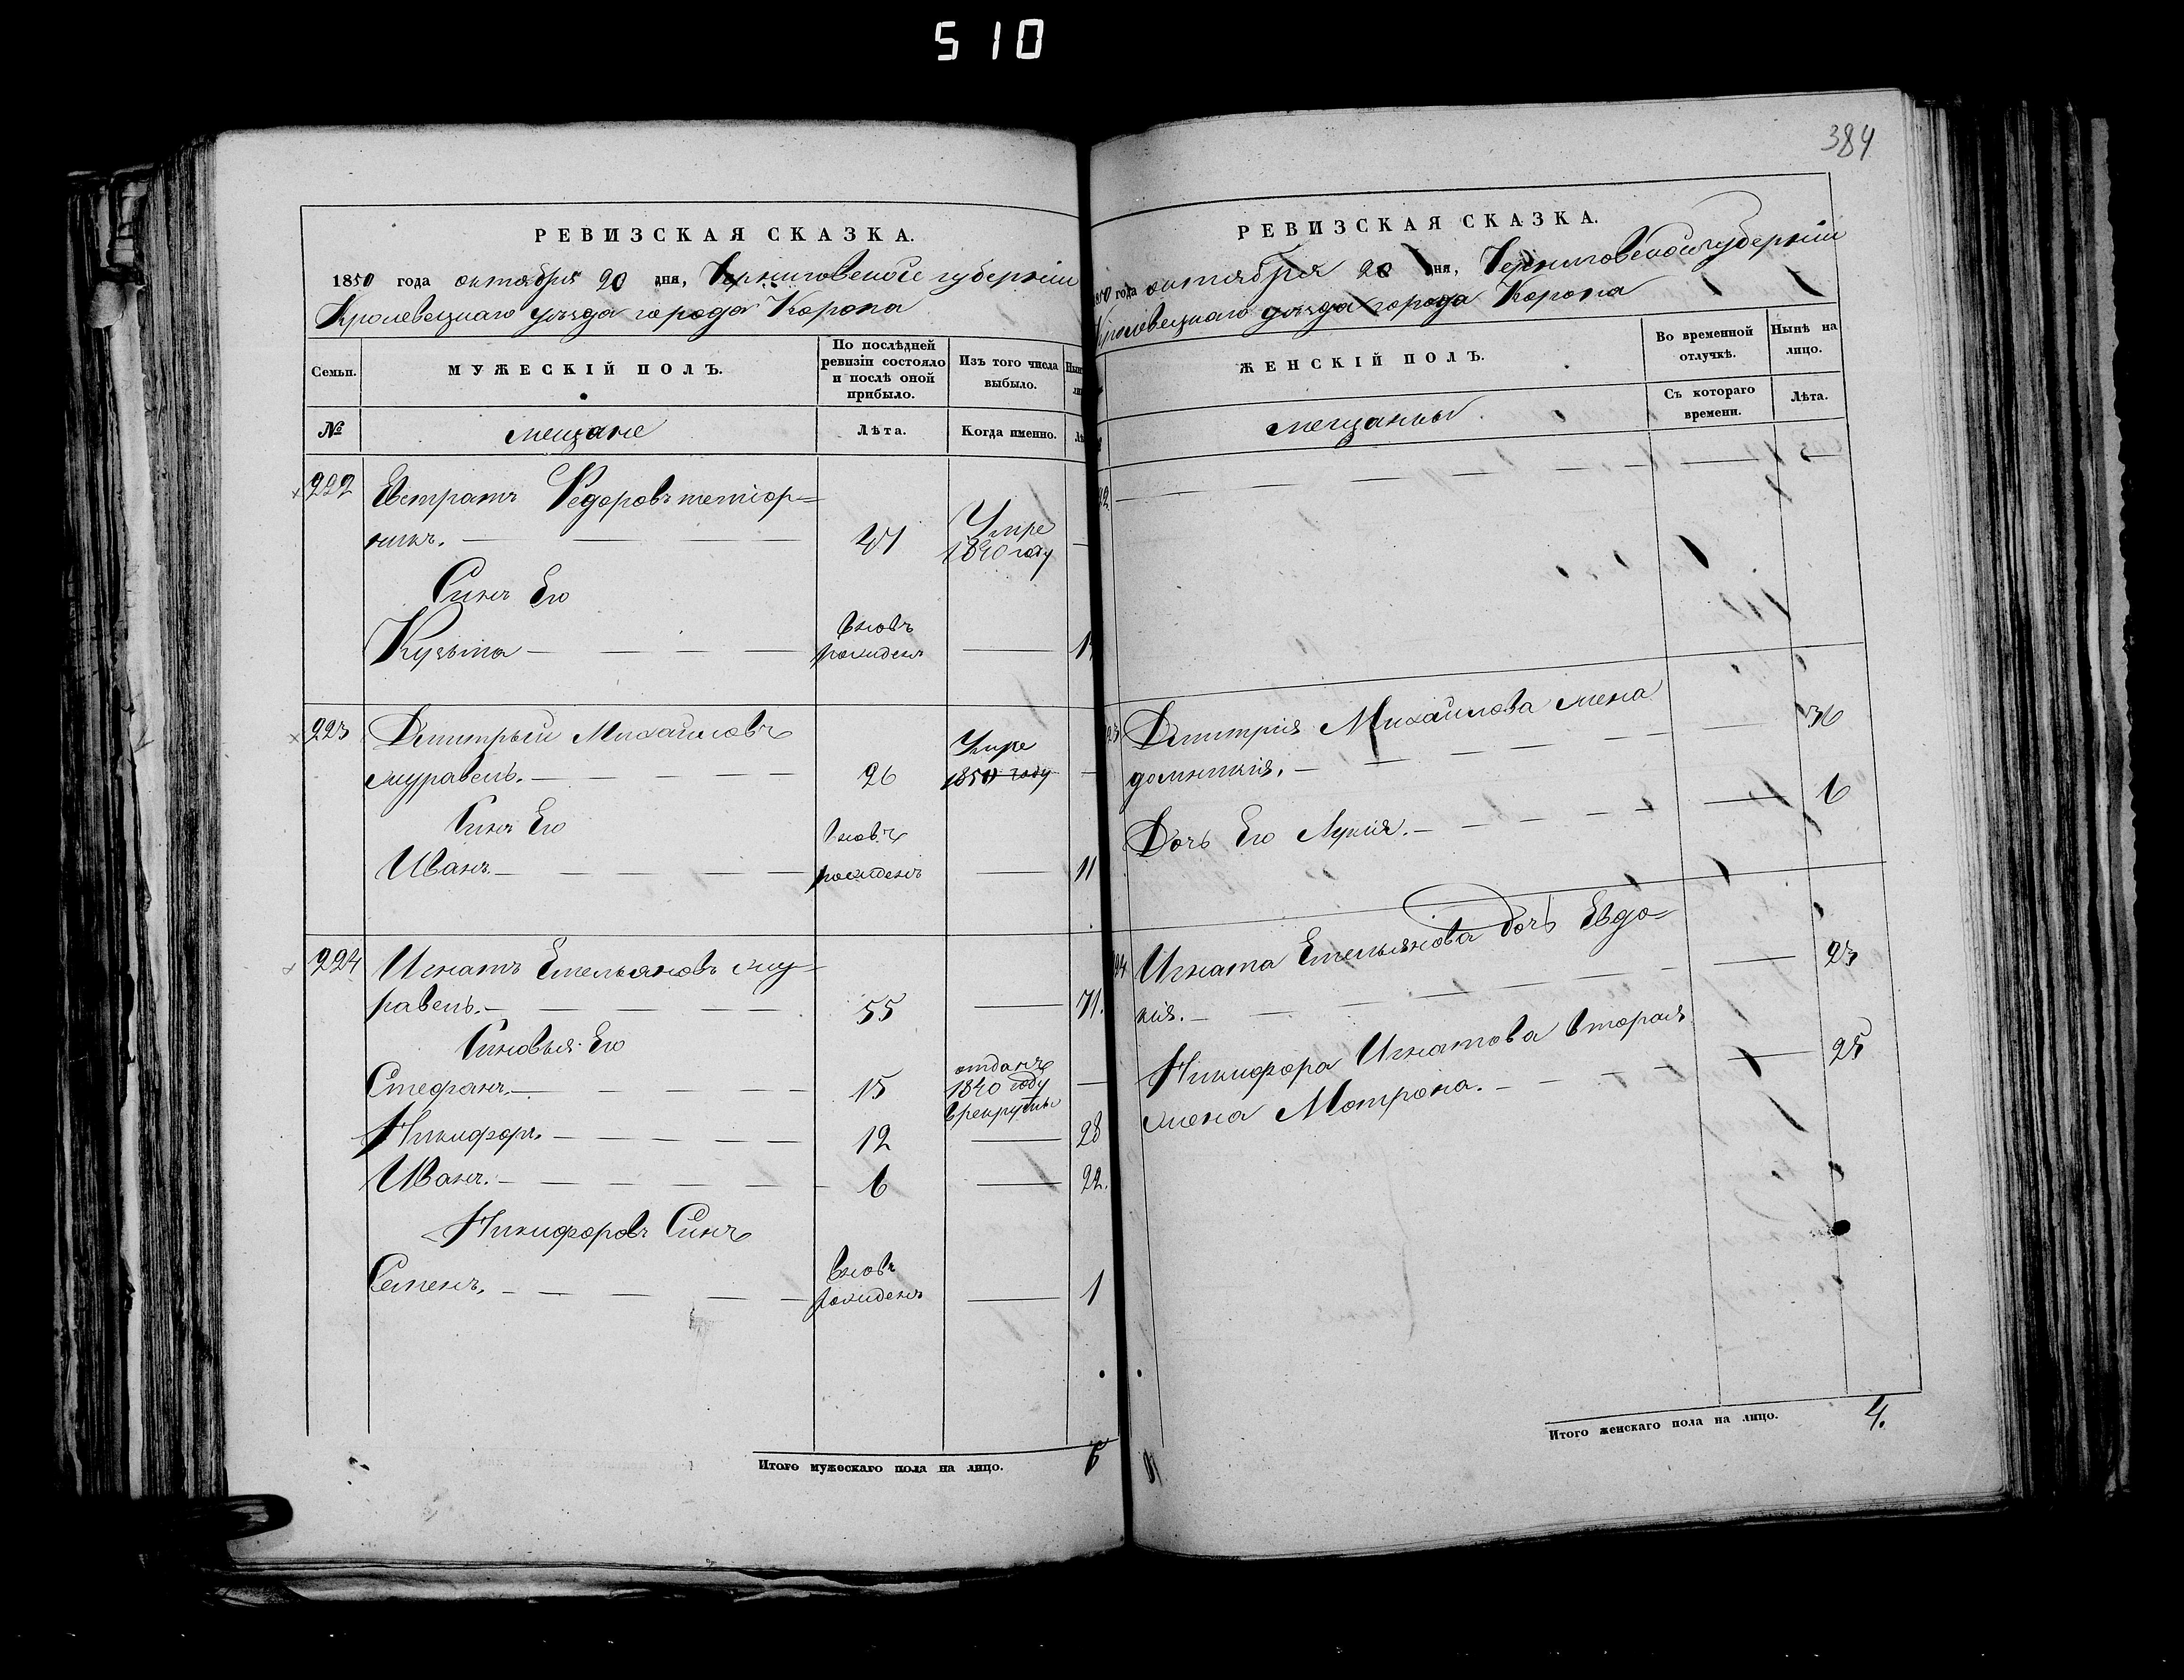 510
384
РЕВИЗСКАЯ СКАЗКА.
1850 года октября 20 дня, Черниговской губерніи
Кролевецкаго уѣзда города Коропа
Семьи. МУЖЕСКІЙ ПОЛЪ. По послѣдней ревизіи состояло и послѣ оной прибыло. Изъ того числа выбыло.
№ мещане Лѣта. Когда именно.
222 Евстратъ Федоровъ тетіор=
никъ. — — — 47 Умре 1840 году —
Синъ Его
Кузьма — — — — вновъ рожденъ —
223 Дмитрыи Михаиловъ
журавель. — — — — 26 Умре 1850 году —
Синъ Его
Иванъ. — — — — вновъ рожденъ — 11
224 Игнатъ Емельяновъ жу=
равель. — — — — 55 — 71.
Синовья Его
Стефанъ. — — — — 15 отданъ 1840 году в рекруты —
Никифоръ. — — — — — 12 — 28
Иванъ. — — — — — — 6 — 22.
Никифоровъ Синъ
Семенъ. — — — — — вновъ рожденъ — 1
Итого мужескаго пола на лицо.
РЕВИЗСКАЯ СКАЗКА.
года октября 20 дня, Черниговской губерніи
Кролевецкаго уѣзда города Коропа
ЖЕНСКІЙ ПОЛЪ. Во временной отлучкѣ. Нынѣ на лицо.
мещанки Съ котораго времени. Лѣта.
Дмитрія Михаилова жена
домникія. — — — — — — 36
Дочь Его Лукія. — — — — — 6
Игната Емельянова дочь Евдо=
кія. — — — — — — 23
Никифора Игнатова вторая
жена Мотрона. — — — — 25
Итого женскаго пола на лицо. 4.